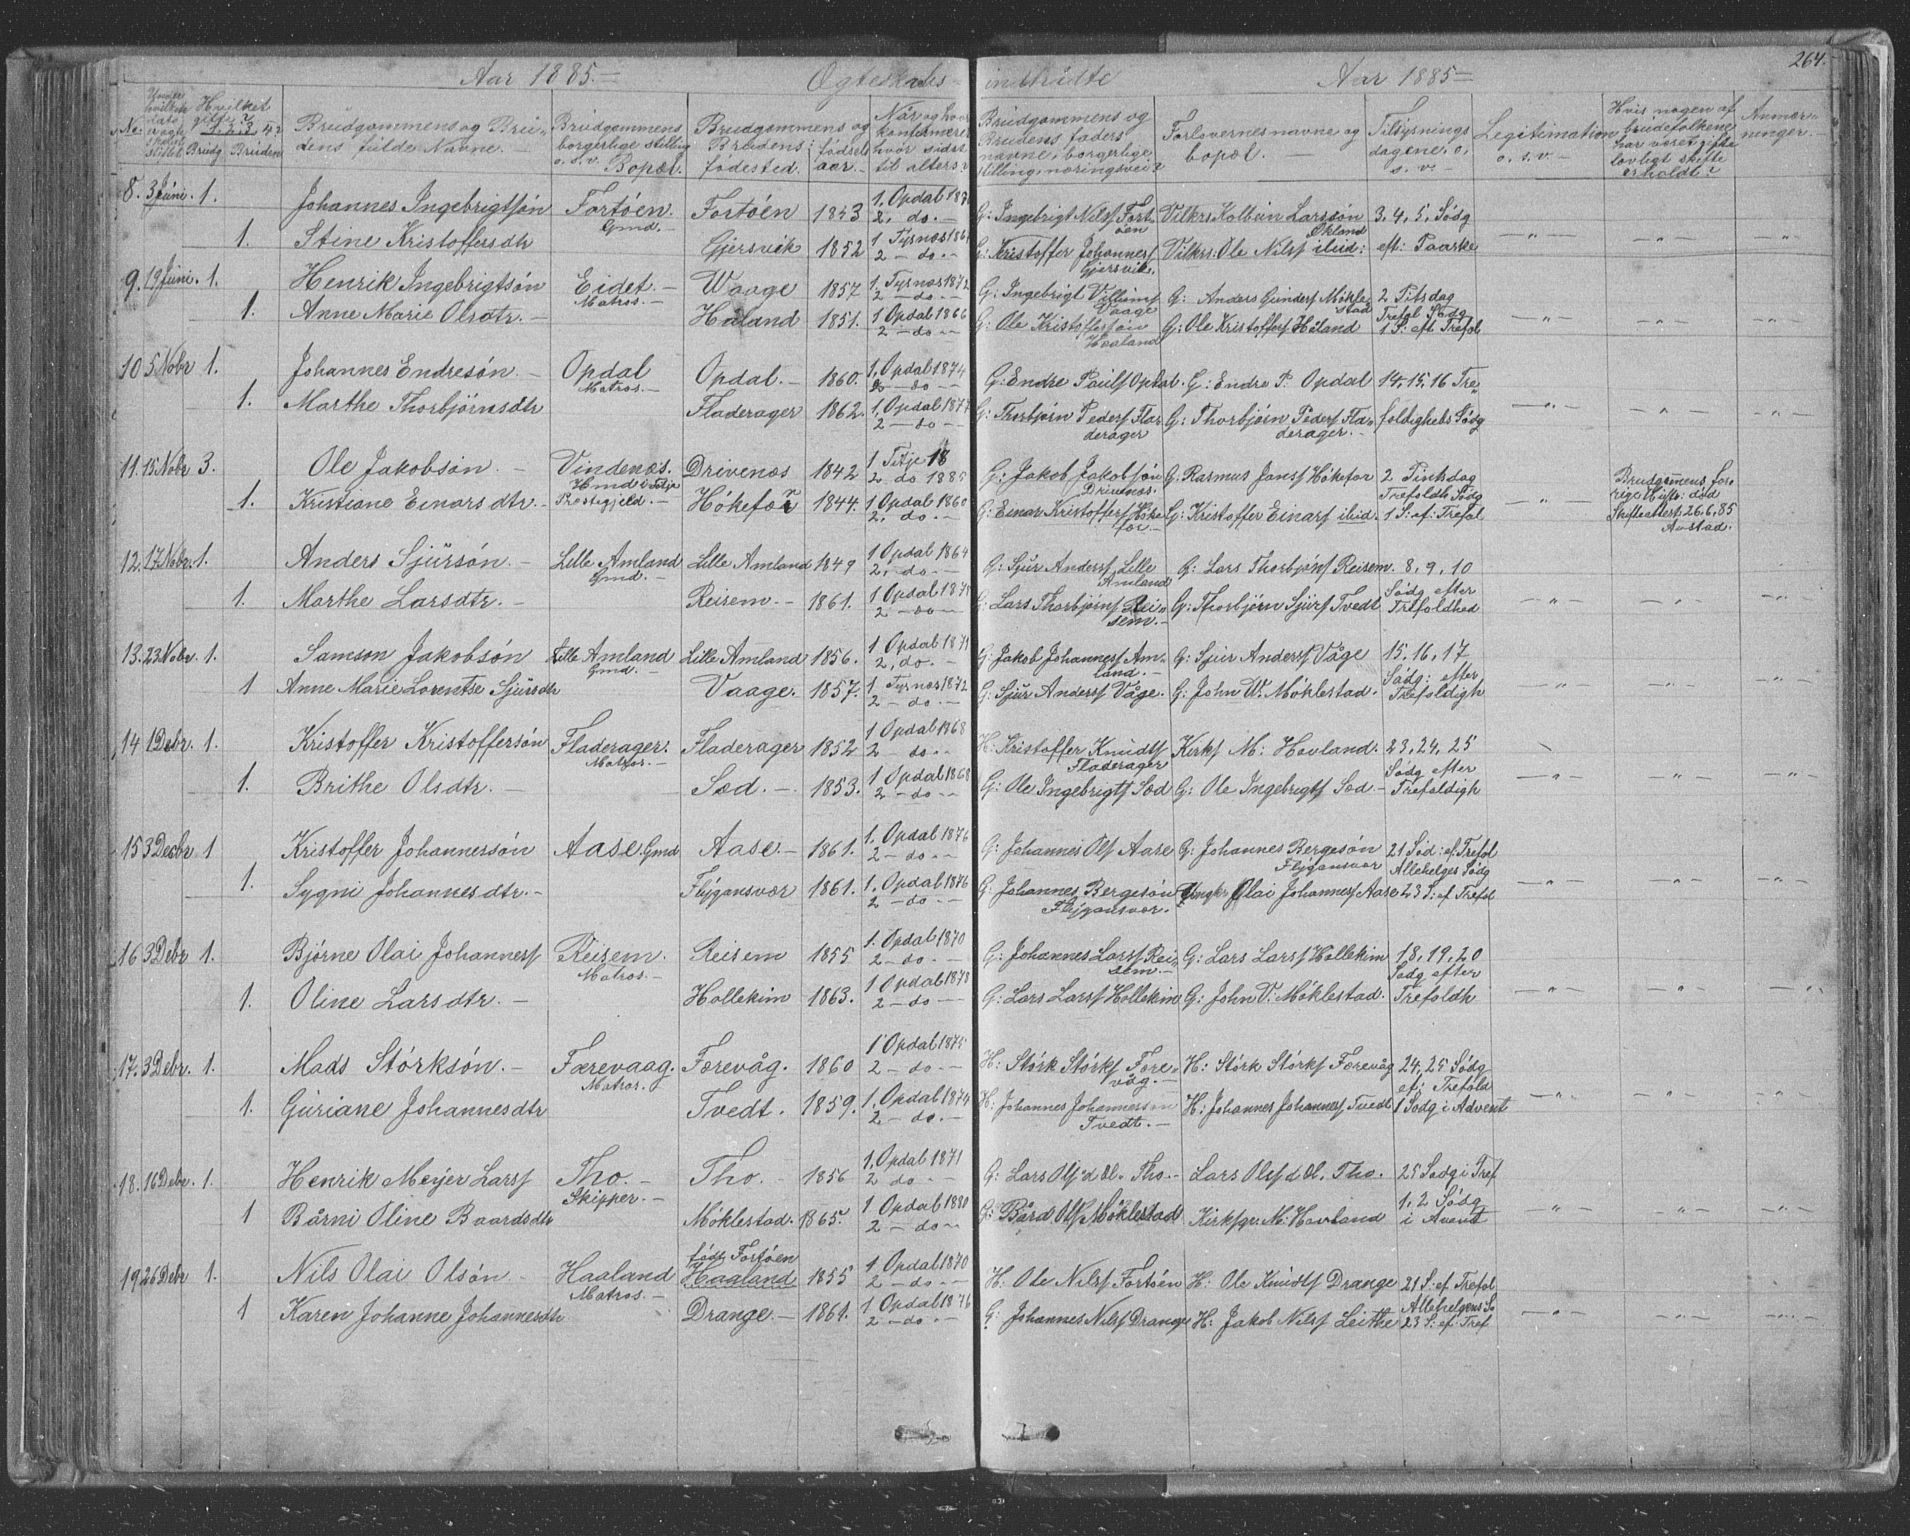 Aar 1885. Ægteskabs- indtrådte Aar 1885 264.
No. Hvilket gifte? 1. 2. 3. 4? Brudg. Bruden
Brudgommens og Brudens fulde Navne.
Brudgommens borgerlige stilling o. s. v. Bopæl.
Brudgommens og Brudens: fødested. fødselsaar.
Når og hvor konfirmeret hvor sidst til alters?
Brudgommens og Brudens faders navne, borgerlige stilling, næringsvei?
Forlovernes navne og bopæl.
Tillysningsdagene, o. s. v.
Legitimation o. s. v.
Hvis nogen af brudefolkene har været gifte lovligt skifte erholdt?
Anmærkninger.
8. 3 Juni. 1. Johannes Ingebrigtsøn Fortøen. Gmd. Fortøen 1853 1. Opdal 2. do. G: Ingebrigt Nilss Fortøen Vilkrs Kolbein Larssøn Økland 3. 4. 5. Sødg
1. Stine Kristoffersdtr Gjersvik 1852 1. Tysnæs 2 do G: Kristoffer Johanness Gjersvik. Vilkrs: Ole Nilss ibid: eft: Paaske
9. 19 Juni. 1. Henrik Ingebrigtsøn Eidet. Matros. Waage 1857 1 Tysnæs 1872 2 do G: Ingebrigt Villums Vaage G: Anders Gunders Møklestad 2 Pitsdag Trefol Sødg
1. Anne Marie Olsdtr. Haland 1851. 1 Opdal 1866 2 do G: Ole Kristoffersøn Haaland G: Ole Kristoffers Håland 1 S: eft Trefol
10 5 Nobr 1. Johannes Endresøn. Opdal Matros. Opdal. 1860. 1. Opdal 1874 2 do G: Endre Pauls Opdal. G: Endre P. Opdal 14. 15. 16 Tre-
1. Marthe Thorbjørnsdtr Fladerager 1862. 1. Opdal 1877 2 do G: Thorbjørn Peders Fladerager G: Thorbjørn Peders Fladerager. foldigheds Sødg
11. 15 Nobr 3. Ole Jakobsøn. Vindenæs. Hmd i Fitje Prestegjeld. Drivenæs 1842 1 Fitje 18 2 do 1885 G: Jakob Jakobsøn Drivenæs. G: Rasmus Janss Høkefor 2 Pinkdag Trefoldh Sødg Brudgommens forrige Hustr: død
1. Kristiane Einarsdtr. Høkefær 1844. 1 Opdal 1860 2. do. G: Einar Kristoffers Høkefor G: Kristoffer Einars ibid. 1 S: ef: Trefol Skifteattest 26.6.85 Austad.
12. 17 Nobr. 1. Anders Sjursøn. Lille Amland Gmd. Lille Amland 1849 1 Opdal 1864 2. do. G: Sjur Anderss Lille Amland G: Lars Thorbjøns Reisem. 8, 9, 10 Sødg efter
1. Marthe Larsdtr. Reisem. 1861. 1 Opdal 2 do G: Lars Thorbjørns Reisem. G: Thorbjørn Sjurs Tvedt Trefoldhed
13. 23 Nobr. 1. Samson Jakobsøn Lille Amland Gmd. Lille Amland 1856. 1 Opdal 1871 2. do. G: Jakob Johanness Amland. G: Sjur Anderss Våge 15, 16, 17 Sødg: efter
1 Anne Marie Lorentse Sjursdtr Vaage. 1857. 1 Tysnæs 1872 2 do. G: Sjur Anderss Våge. G: John W. Møklestad. Trefoldigh
14 1 Debr. 1. Kristoffer Kristoffersøn Fladerager. Matros. Fladerager 1852 1 Opdal 1868 2 do H: Kristoffer Knudts Fladerager Kirks M: Hovland. 23, 24, 25 Sødg efter
1. Brithe Olsdtr. Sæd. 1853. 1 Opdal 1868 2 do G: Ole Ingebrigts Sæd G: Ole Ingebrigts Sæd. Trefoldigh
15 3 Decbr 1 Kristoffer Johannersøn Aase. Gmd Aase. 1861. 1. Opdal 1876 2 do G: Johannes Ols Aase G: Johannes Bergesøn Flygansvær 21 Sød: ef. Trefol Allehelges Sødg
1. Sygni Johannesdtr. Flygansvær 1861. 1. Opdal 1876 2 do G: Johannes Bergesøn Flygansvær. Ungkr Olai Johanness Aase 23 S: ef Trefol
16 3 Debr 1. Bjørne Olai Johanness Reisem. Matros. Reisem 1855 1. Opdal 1870 2 do G: Johannes Larss Reisem. G: Lars Larss Hollekim 18, 19, 20 Sødg efter
1. Oline Larsdtr. Hollekim 1863. 1 Opdal 1878 2 do G: Lars Larss Hollekim G: John V. Møklestad. Trefoldh
17. 3 Debr. 1. Mads Størksøn. Færevaag. Matros. Færevåg. 1860 1 Opdal 1875 2 do. H: Størk Størks Færevåg. H: Størk Størks Færevåg 24, 25 Sødg ef: Trefold
1. Guriane Johannesdtr Tvedt. 1859. 1. Opdal 1874 2. do. H: Johannes Johannessøn Tvedt. H: Johannes Johanness Tvedt 1 Sødg i Advent
18. 16 Debr. 1. Henrik Meyer Larss Tho. Skipper. Tho. 1856 1. Opdal 1871 2 do. G: Lars Ols d Æl. Tho. Lars Olss d Æl. Tho. 25 Sødg i Tref
1 Bårni Oline Baardsdtr Møklestad. 1865. 1 Opdal 1880 2 do G: Bård Ols Møklestad Kirksgr. M: Hovland 1, 2 Sødg i Avent
19. 26 Debr 1. Nils Olai Olsøn Haaland Matros. født Fortøen Haaland 1855 1 Opdal 1870 2 do H: Ole Nilss Fortøen H: Ole Knudts Drange 21 S: ef Trefol Allehelgens S.
1 Karen Johanne Johannesdtr Drange. 1861. 1 Opdal 1876 2 do G: Johannes Nilss Drange H: Jakob Nilss Leithe 23 S: ef: Tref